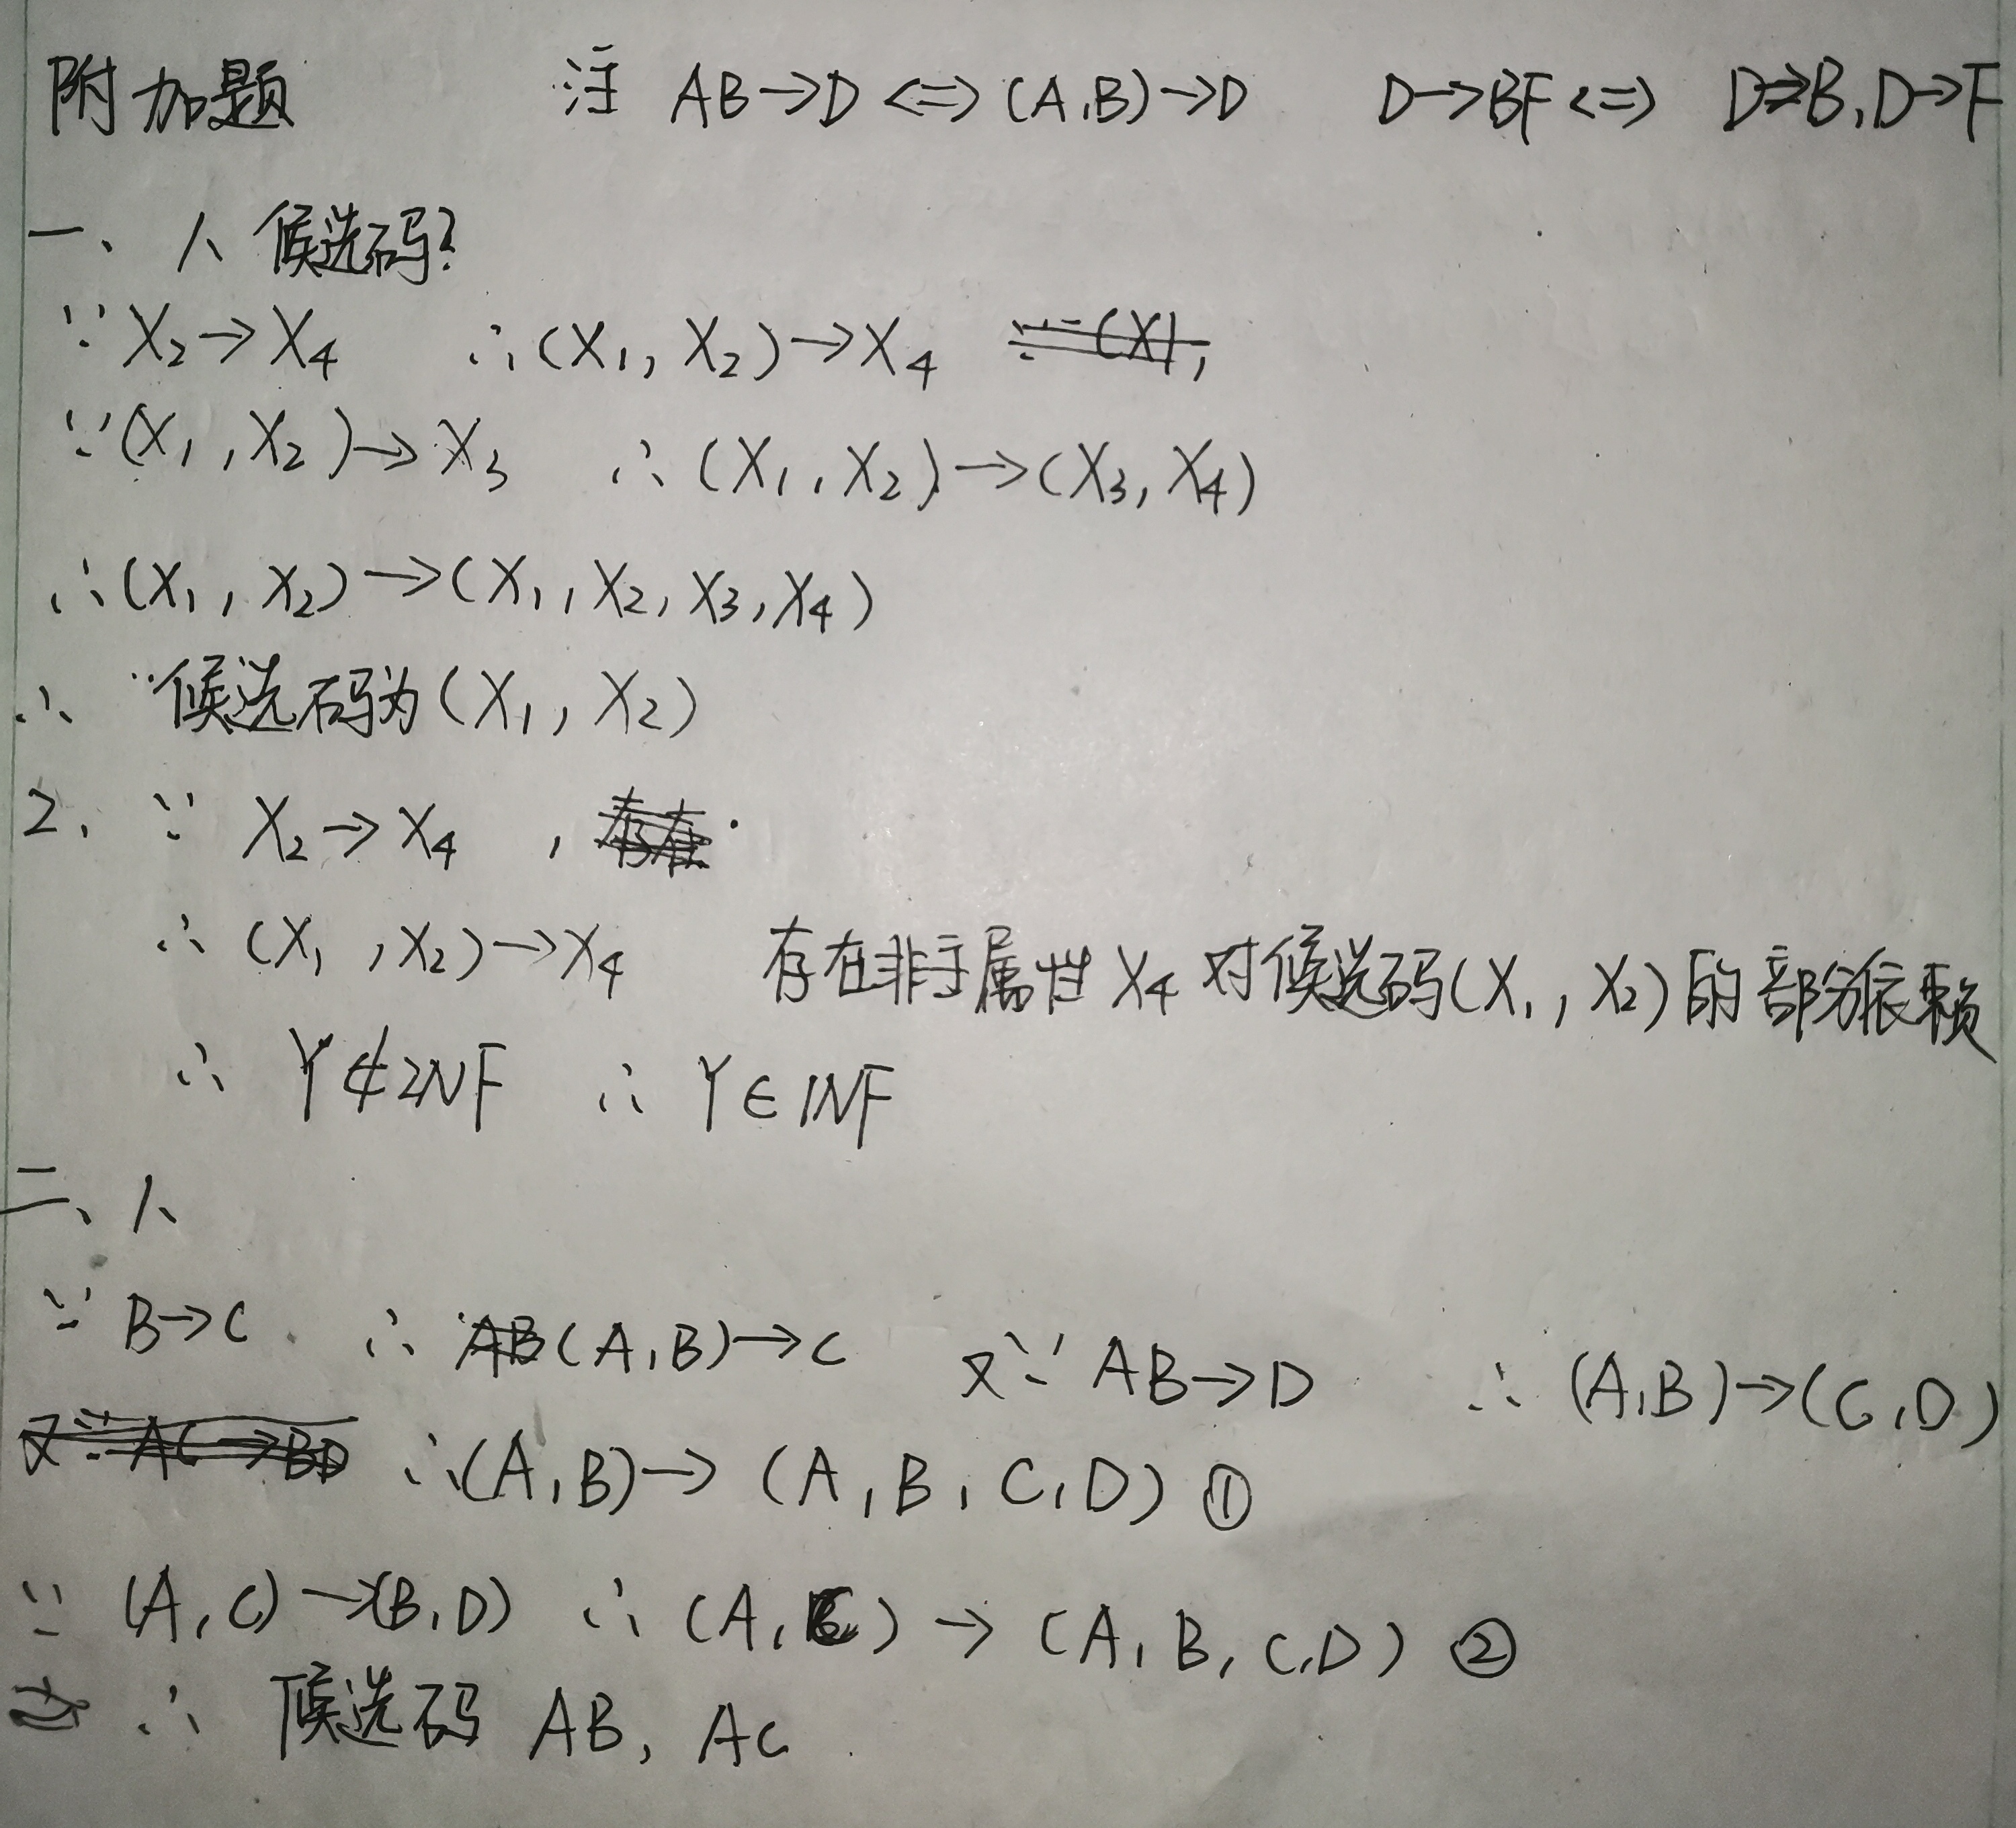 附加题 注 AB→D <=> (A,B)→D D→BF <=> D→B,D→F
一、1、候选码?
∵X₂→X₄ ∴(X₁,X₂)→X₄
∵(X₁,X₂)→X₃ ∴(X₁,X₂)→(X₃,X₄)
∴(X₁,X₂)→(X₁,X₂,X₃,X₄)
∴ 候选码为(X₁,X₂)
2、∵ X₂→X₄ ,
∴(X₁,X₂)→X₄ 存在非主属性X₄对候选码(X₁,X₂)的部分依赖
∴ Y∉2NF ∴ Y∈1NF
二、1、
∵ B→C ∴ (A,B)→C 又∵ AB→D ∴ (A,B)→(C,D)
∴(A,B)→(A,B,C,D) ①
∵ (A,C)→(B,D) ∴ (A,C)→(A,B,C,D) ②
∴ 候选码 AB, AC